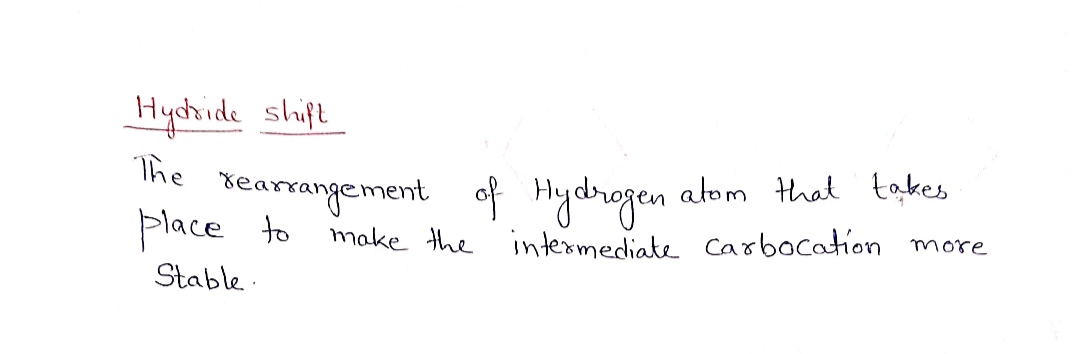 Hydride shift
The rearrangement of Hydrogen atom that takes
place to make the intermediate carbocation more
Stable.